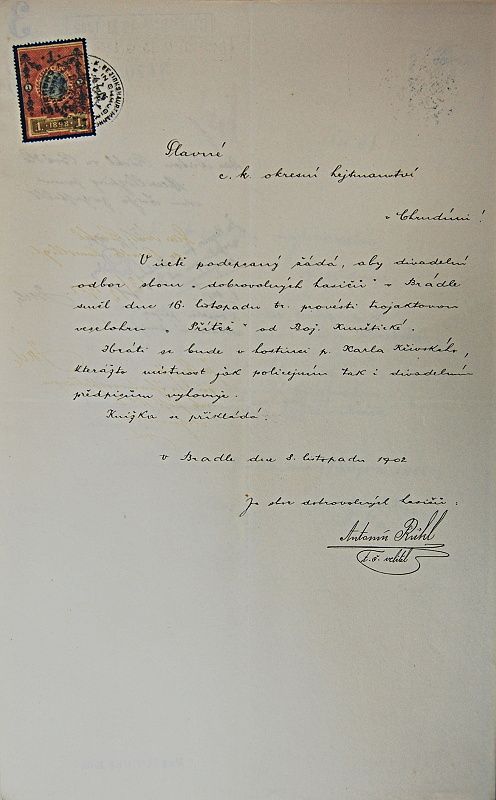 1 1898 1
K. K. BEZIRKSHAUPTMANN
IN CHRUDIM
Slavné
c. k. okresní hejtmanství
v Chrudimi!
V úctě podepsaný žádá, aby divadelní
odbor sboru „dobrovolných hasičů" v Bradle
směl dne 16. listopadu tr. provésti trojaktovou
veselohru „Přítěž" od Boj. Kunětické.
Hráti se bude v hostinci p. Karla
kterážto místnost jak policejním tak i divadelním
předpisům vyhovuje.
Knížka se přikládá.
v Bradle dne 8. listopadu 1902
Za sbor dobrovolných hasičů:
Antonín Rühl
t. č. velitel